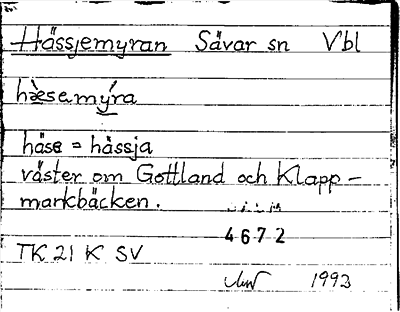 Hässjemyran Sävar sn Vbl
hæ̀semýra
häse = hässja
väster om Gottland och Klapp-
markbäcken.
4672
TK 21 K SV
1993